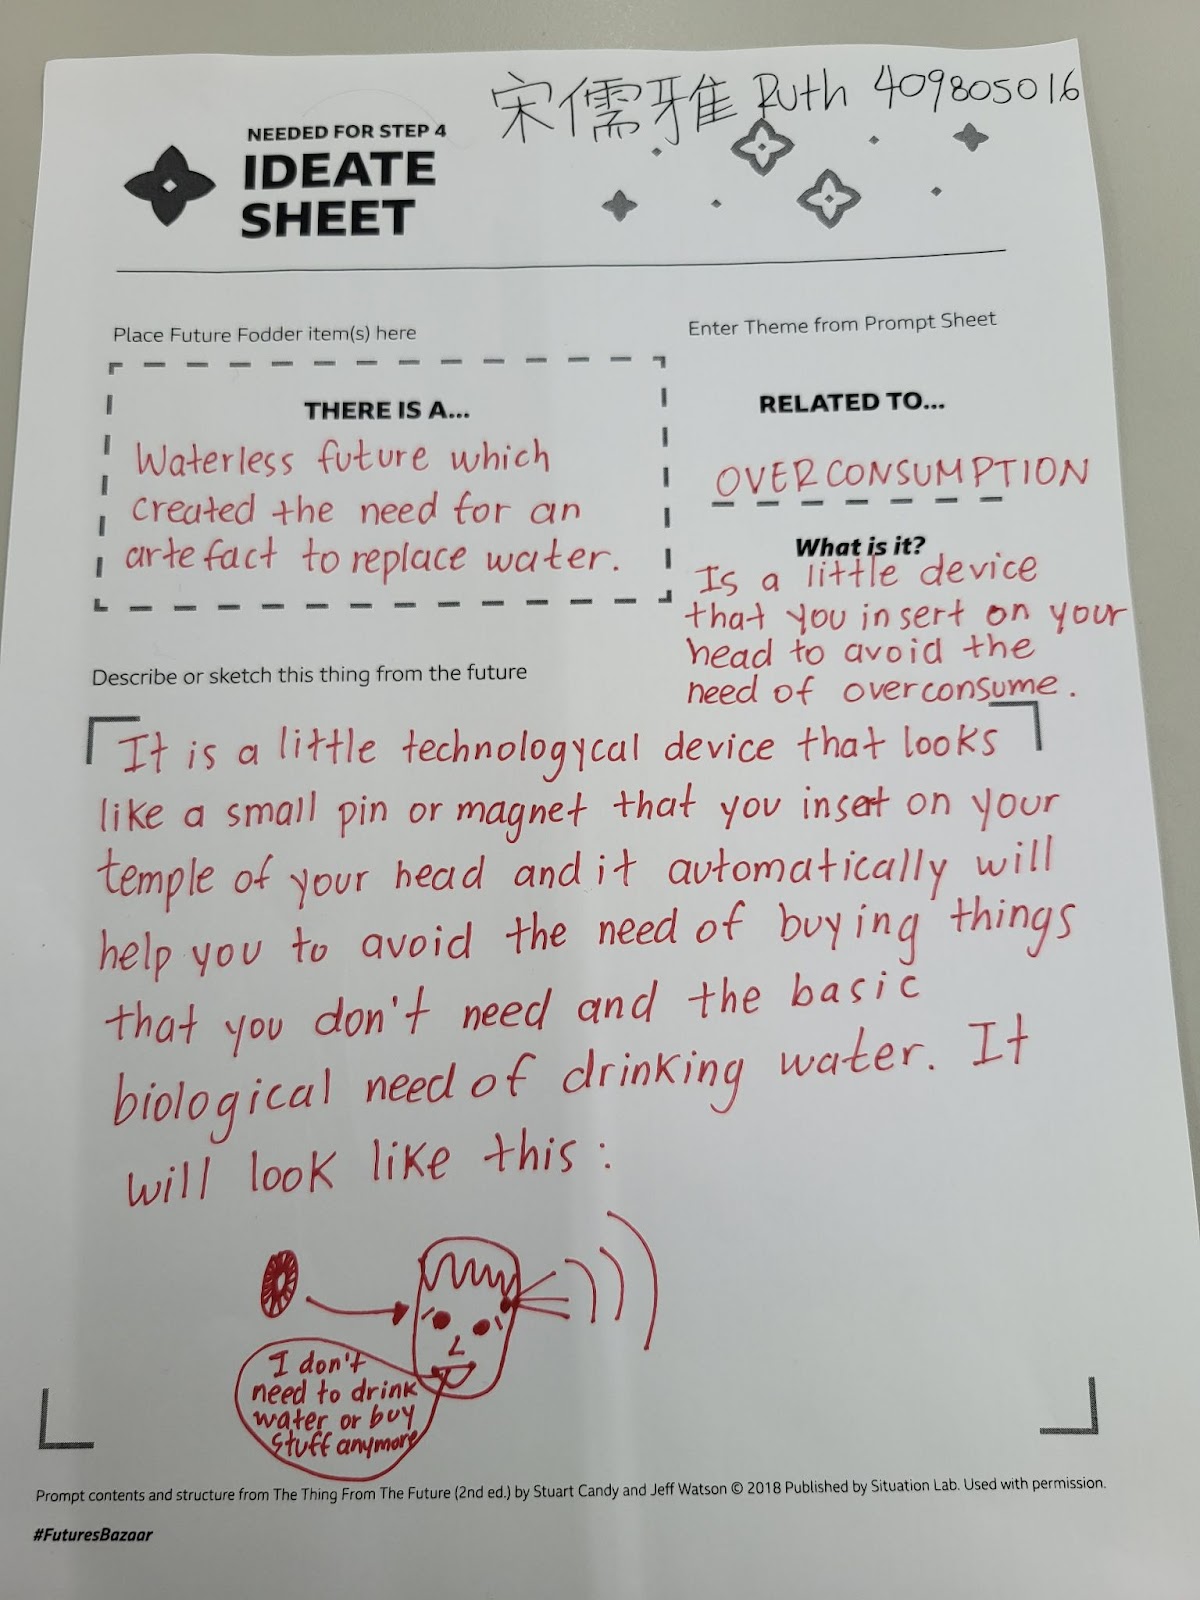 宋儒雅 Ruth 409805016
NEEDED FOR STEP 4
IDEATE
SHEET
Place Future Fodder item(s) here
Enter Theme from Prompt Sheet
THERE IS A...
Waterless future which
created the need for an
artefact to replace water.
RELATED TO...
OVERCONSUMPTION
What is it?
Is a little device
that you insert on your
head to avoid the
need of overconsume.
Describe or sketch this thing from the future
It is a little technologycal device that looks
like a small pin or magnet that you insert on your
temple of your head and it automatically will
help you to avoid the need of buying things
that you don't need and the basic
biological need of drinking water. It
will look like this:
I don't
need to drink
water or buy
stuff anymore
Prompt contents and structure from The Thing From The Future (2nd ed.) by Stuart Candy and Jeff Watson © 2018 Published by Situation Lab. Used with permission.
#FuturesBazaar